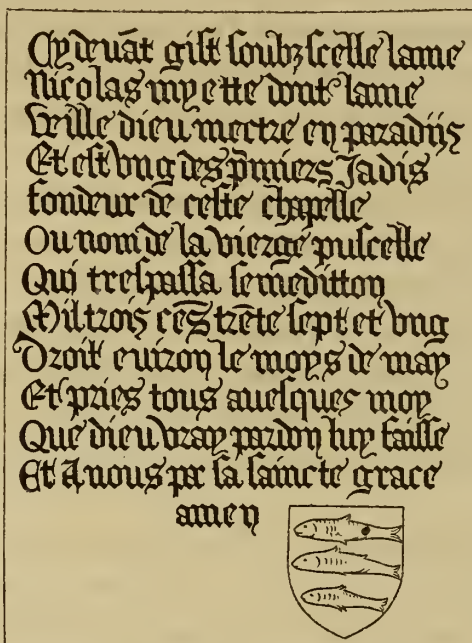 Cy deuāt gist soubz scelle lame
Nicolas myette dont lame
Veille dieu mectre en paradijs
Et est vng des p̄miers Jadis
fondeur de ceste chapelle
Ou nom de la vierge puscelle
Qui trespassa se me ditton
Mil trois cēs trēte sept et vng
Droit euiron le moys de may
Et pries tous auesques moy
Que dieu vray pardon luy faisse
Et A nous par sa saincte grace
amen